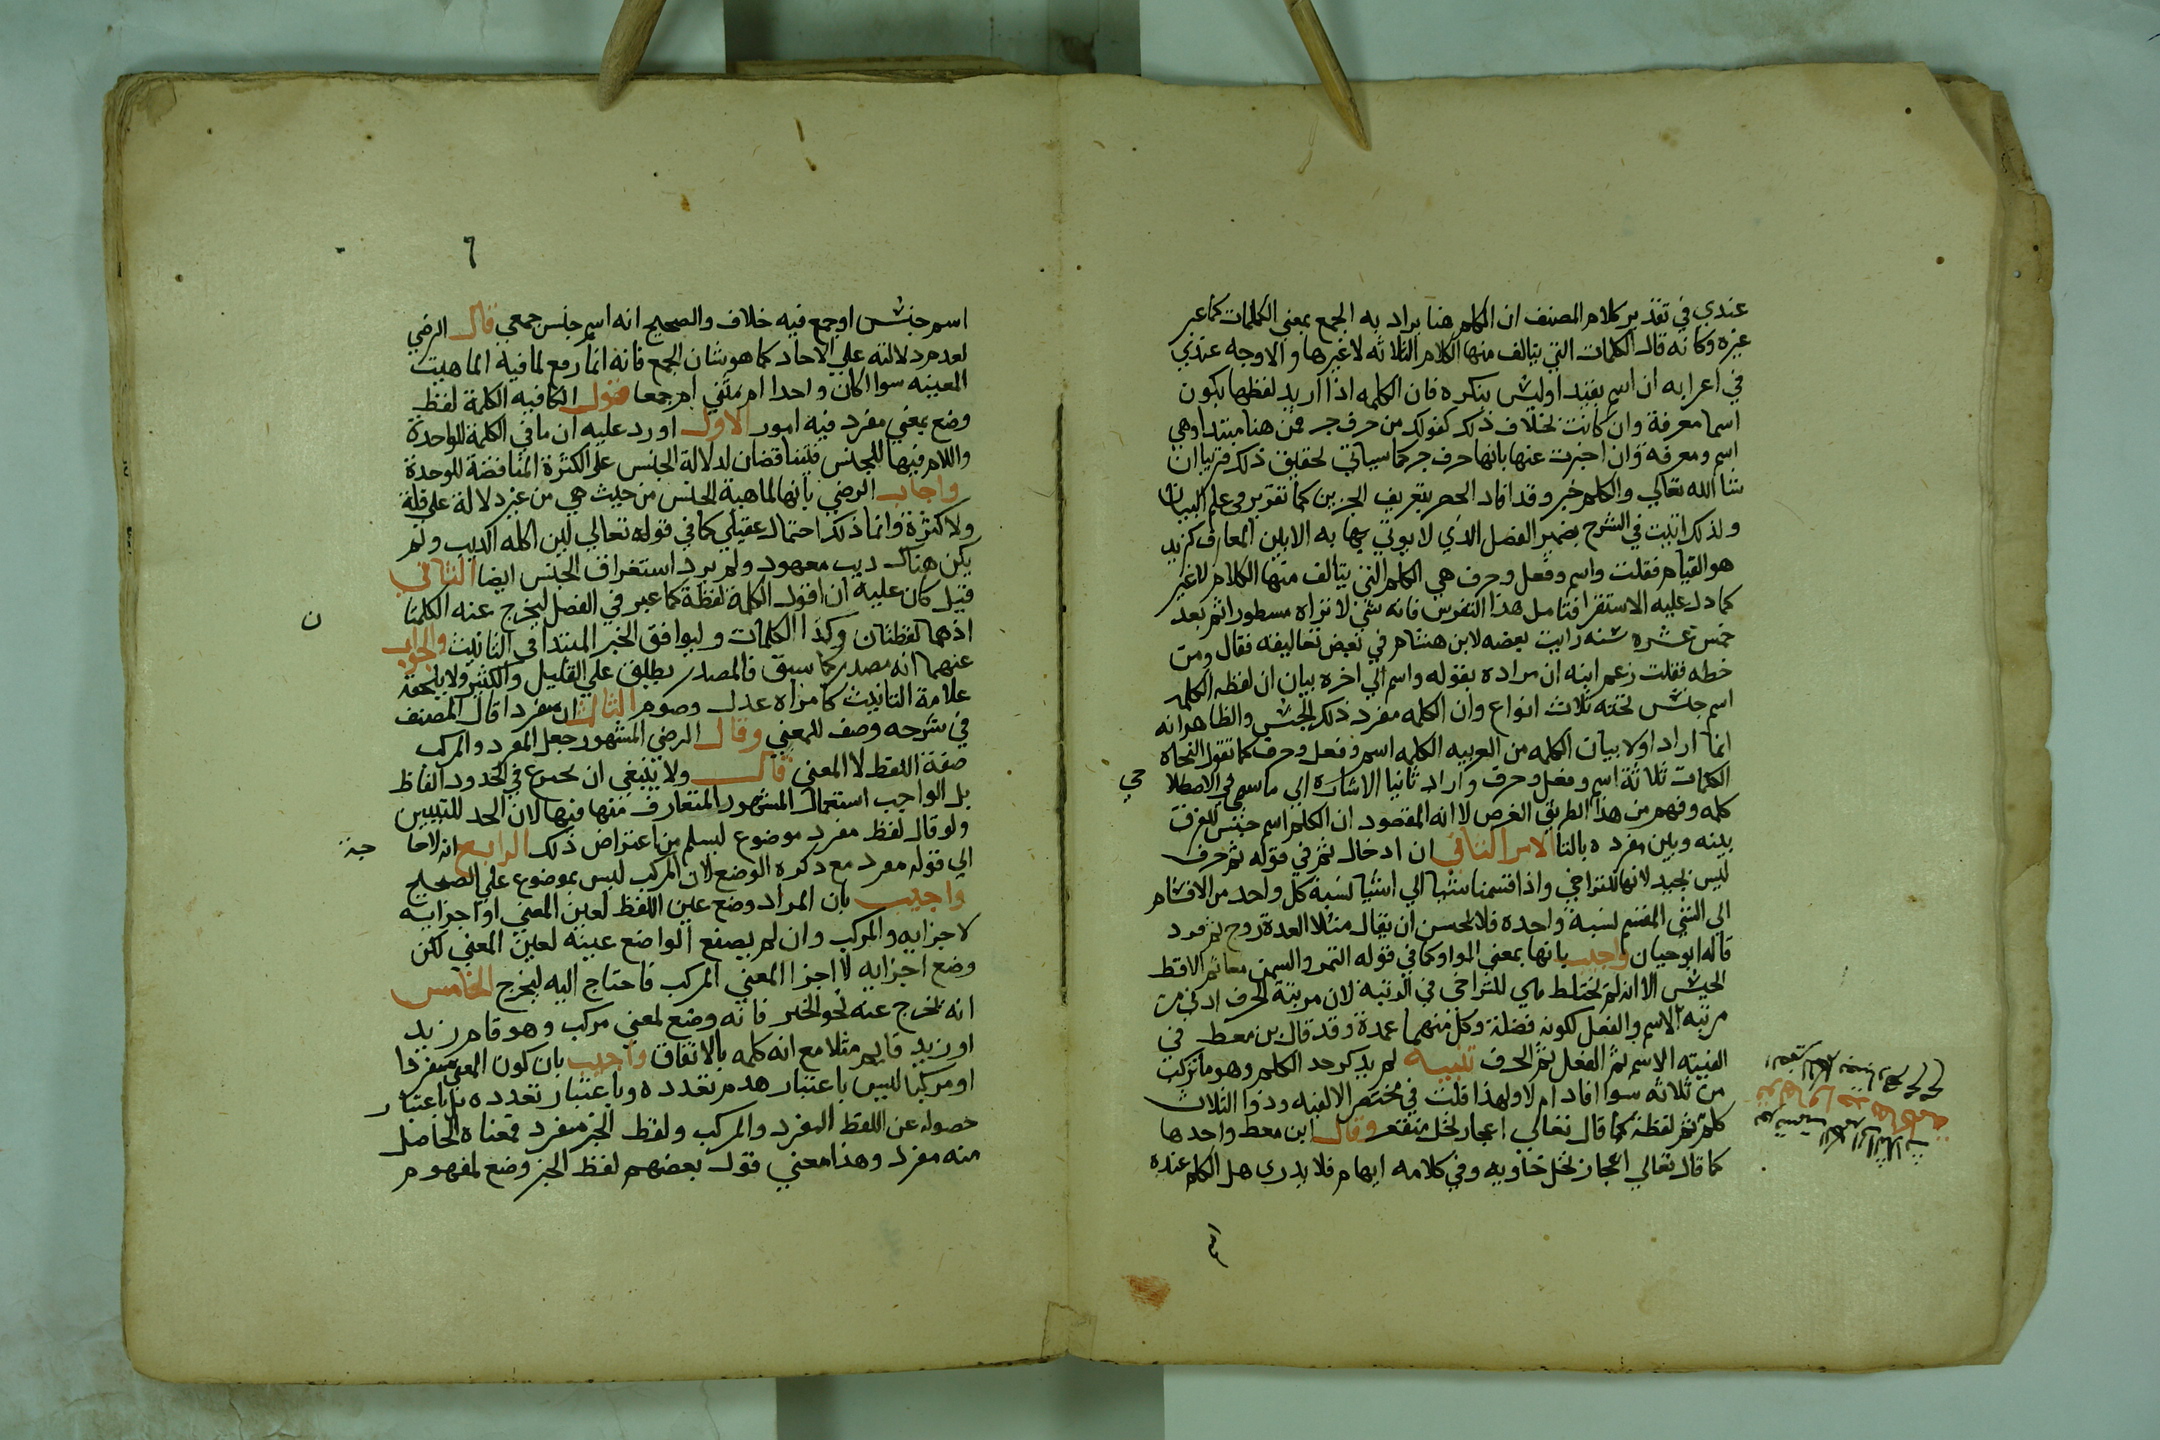 عندي في تقدير كلام المصنف ان الكلم هنا يراد به الجمع بمعني الكلمات كما عبر
غيره وكانه قال الكلمات التي يتالف منها الكلام الثلاثه لا غيرها والاوجه عندي
في اعرابه ان اسم مبتدا وليس بنكره فان الكلمه اذا اريد لفظها يكون
اسما معرفة وان كانت بخلاف ذلك كقولك من حرف جر فمن هنا مبتدا وهي
اسم ومعرفه وان اخبرت عنها بانها حرف جر كما سياتي تحقيق ذلك قريبا ان
شا الله تعالي والكلم خبر وقد افاد الحصر بتعريف الجزين كما تقرر في علم البيان
ولذلك اتيت في الشرح بضمير الفصل الذي لا يوتي به الا بين المعارف كزيد
هو القيام فقلت واسم وفعل وحرف هي الكلم التي يتالف منها الكلام لا غير
كما دل عليه الاستقرا فتامل هذا التقرير فانه شي لا تراه مسطورا ثم بعد
خمس عشره سنه رايت بعضه لابن هشام في بعض تعاليقه فقال ومن
خطه نقلت زعم ابنه ان مراده بقوله واسم الي اخره بيان ان لفظه الكلم
اسم جنس تحته ثلاث انواع وان الكلمه مفرد ذلك الجنس والظاهر انه
انما اراد اولا بيان الكلمه من العربيه الكلمه اسم وفعل وحرف كما تقول النحاه
الكلمات ثلاثة اسم وفعل وحرف واراد ثانيا الاشاره الي ما سمي في الاصطلا حي
كلمه وفهم من هذا الطريق الغرض لا انه المقصود ان الكلم اسم جنس للفرق
بينه وبين مفرده بالتا الامر الثاني ان ادخال ثم في قوله ثم حرف
ليس بجيد لانها للتراخي واذا قسمنا شيا الي اشيا نسبة كل واحد من الاقسام
الي الشي المقسم نسبة واحده فلا يحسن ان يقال مثلا العدة زوج ثم فرد
قاله ابو حيان واجيب بانها بمعني الواو كما في قوله التمر والسمن معا ثم الاقط
الحيس الا انه لم يختلط هي للتراخي في الرتبة لان مرتبة الحرف ادني من
مرتبه الاسم والفعل لكونه فضلة وكل منهما عمدة وقد قال بن معط في
الفيته الاسم ثم الفعل ثم الحرف تنبيه لم يذكر حد الكلم وهو ما تركب
من ثلاثه سوا افاد ام لا ولهذا قلت في مختصر الالفيه وذوا الثلاث
كلم ثم لفظة كما قال تعالي اعجاز نخل منقعر وقال ابن معط واحدها
كما قال تعالي اعجاز نخل خاويه وفي كلامه ايهام فلا يدري هل الكلم عنده
٦
اسم جنس او جمع فيه خلاف والصحيح انه اسم جنس جمعي قال الرضي
لعدم دلالته علي الاحاد كما هو شان الجمع فانه انما رفع لما فيه الماهيت
المعينه سوا اكان واحدا ام مثني ام جمعا فقول الكافيه الكلمة لفظ
وضع بمعني مفرد فيه امور الاول اورد عليه ان ما في الكلمة للواحدة
واللام فيها للجنس فيتناقضان لدلالة الجنس على الكثرة المناقضة للوحدة
واجاب الرضي بانها لماهية الجنس من حيث هي من غير دلالة علي قلة
ولا كثرة وانما ذلك احتمال عقلي كما في قوله تعالي لين اكله الديب ولم
يكن هناك ديب معهود ولم يرد استغراق الجنس ايضا الثاني
قيل كان عليه ان اقول الكلمة لفظة كما عبر في الفصل ليخرج عنه الكلمتا ن
اذهما لفظتان وكذا الكلمات وليوافق الخبر المبتدا في التانيث والجواب
عنهما انه مصدر كما سبق فالمصدر يطلق علي القليل والكثير ولا يلحقه
علامة التانيث كامراه عدل وصوم الثالث ان مفردا قال المصنف
في شرحه وصف للمعني وقال الرضي المشهور جعل المفرد والمركب
صفة اللفظ لا المعني قال ولا ينبغي ان يخترع في الحدود الفاظ
بل الواجب استعمال المشهور المتعارف منها فيها لان الحد للتبيين
ولو قال لفظ مفرد موضوع لسلم من اعتراض ذلك الرابع انه لا حا جة
الي قوله مفرد مع ذكره الوضع لان المركب ليس بموضوع علي الصحيح
واجيب بان المراد وضع عين اللفظ لعين المعني او اجزايه
لاجزايه والمركب وان لم يضع الواضع عينه لعين المعني لكن
وضع اجزايه لاجزا المعني المركب فاحتاج اليه ليخرج الخامس
انه يخرج عنه نحو الخبر فانه وضع لمعني مركب وهو قام زيد
او زيد قايم مثلا مع انه كلمه بالاتفاق واجيب بان كون المعني مفردا
او مركبا ليس باعتبار عدم تعدده وباعتبار تعدده بل باعتبار
حصوله عن اللفظ المفرد والمركب ولفظ الخبر مفرد فمعناه الحاصل
منه مفرد وهذا معني قول بعضهم لفظ الخبر وضع لمفهوم